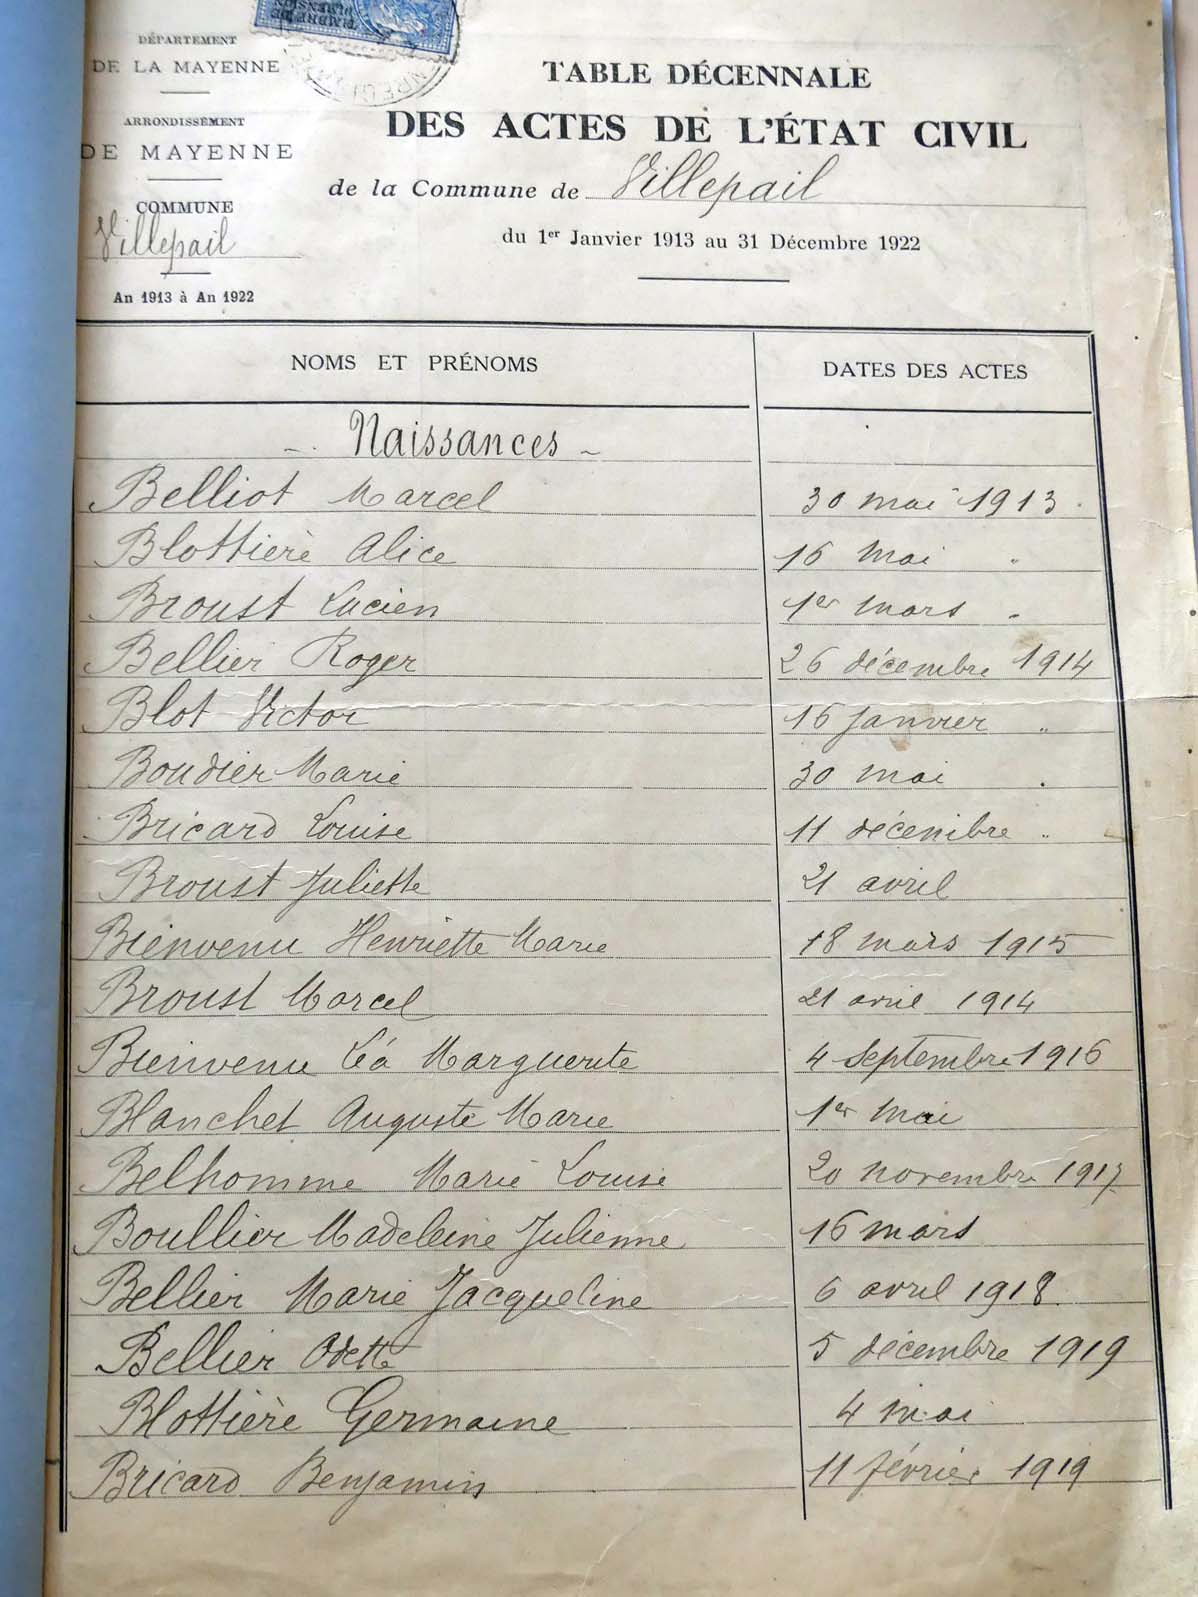 DÉPARTEMENT
DE LA MAYENNE
ARRONDISSEMENT
DE MAYENNE
COMMUNE
Villepail
An 1913 à An 1922
TIMBRE DE
DIMENSION
TABLE DÉCENNALE
DES ACTES DE L'ÉTAT CIVIL
de la Commune de Villepail
du 1er Janvier 1913 au 31 Décembre 1922
NOMS ET PRÉNOMS DATES DES ACTES
- Naissances -
Belliot Marcel 30 mai 1913
Blottière Alice 16 mai "
Broust Lucien 1er mars "
Bellier Roger 26 décembre 1914
Blot Victor 16 janvier "
Boudier Marie 30 mai "
Bricard Louise 11 décembre "
Broust Juliette 21 avril
Bienvenu Henriette Marie 18 mars 1915
Broust Marcel 21 avril 1914
Bienvenu Léa Marguerite 4 septembre 1916
Blanchet Auguste Marie 1er mai
Belhomme Marie Louise 20 novembre 1917
Boullier Madeleine Julienne 16 mars
Bellier Marie Jacqueline 6 avril 1918
Bellier Odette 5 décembre 1919
Blottière Germaine 4 mai
Bricard Benjamin 11 février 1919